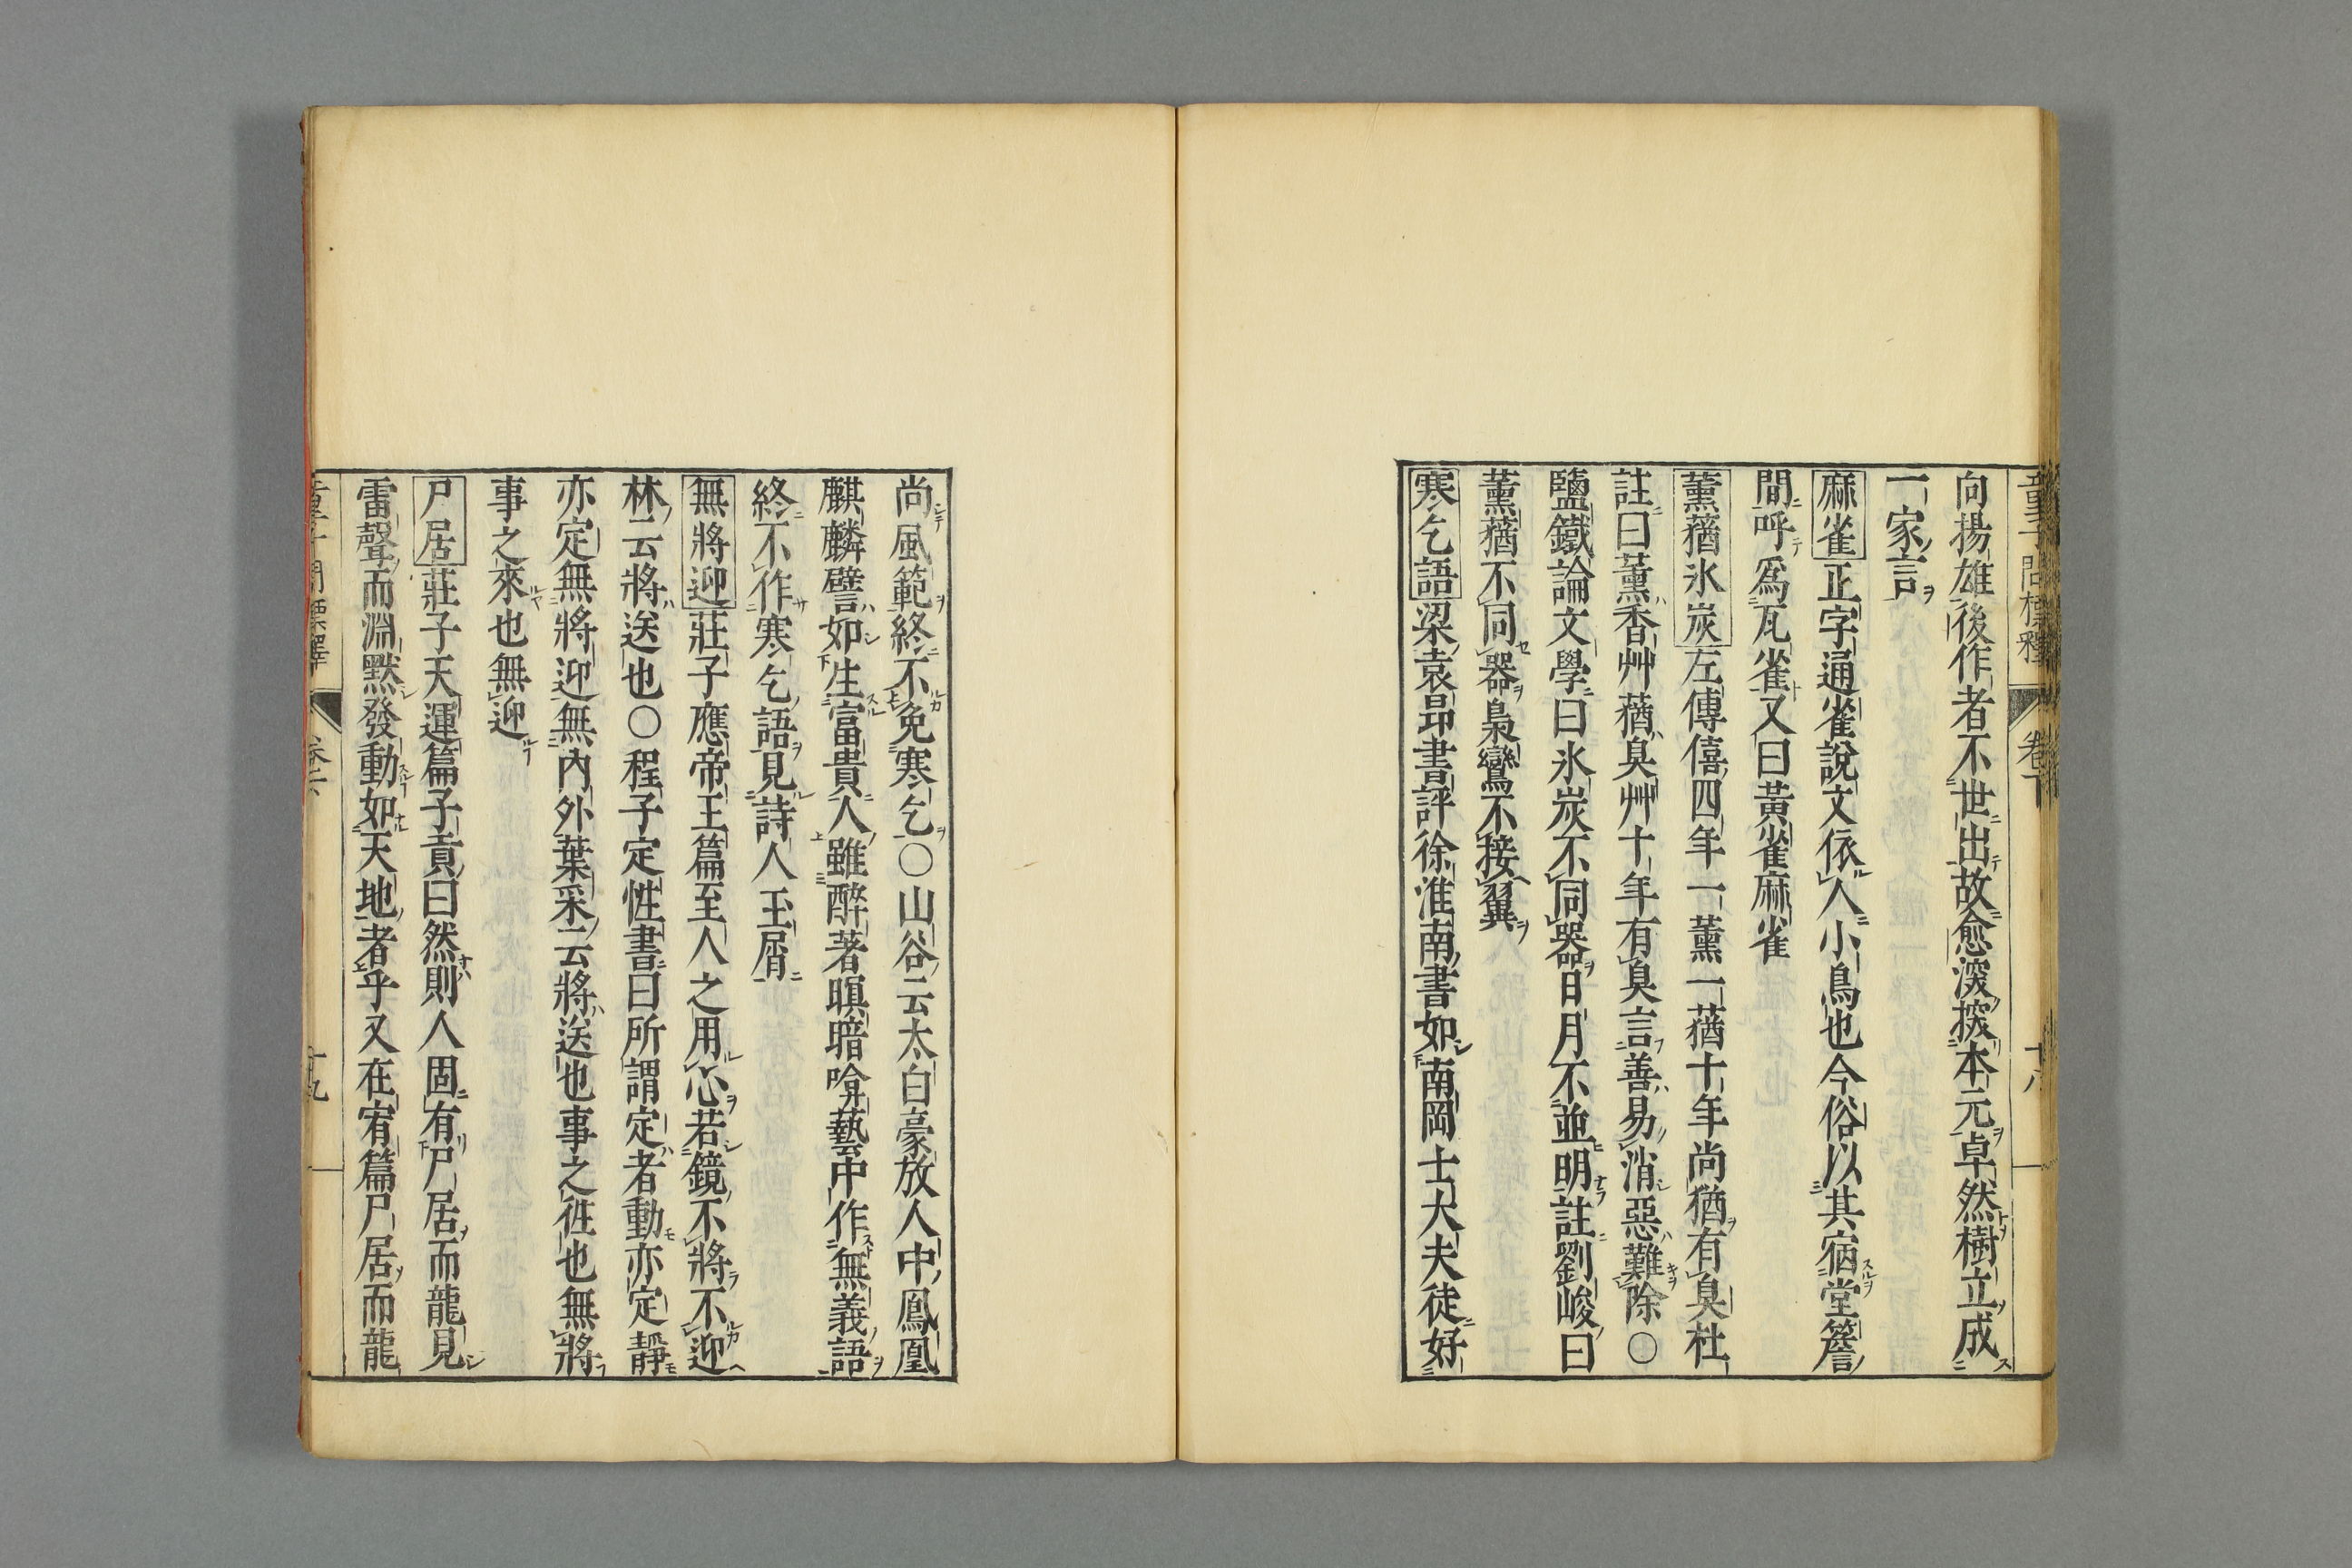 向揚雄後作者不世出故愈深探本元卓然樹立成
一家言
麻雀正字通雀說文依人小鳥也今俗以其宿堂簷
間呼爲瓦雀又曰黃雀麻雀
薰蕕氷炭左傳僖四年一薰一蕕十年尚猶有臭杜
註曰薰香艸蕕臭艸十年有臭言善易消惡難除〇
鹽鐵論文學曰氷炭不同器日月不並明註劉峻曰
薰蕕不同器梟鸞不接翼
寒乞語梁袁昂書評徐淮南書如南岡士大夫徒好
尚風範終不免寒乞〇山谷云太白豪放人中鳳凰
麒麟譬如生富貴人雖醉著瞑暗啽囈中作無義語
終不作寒乞語見詩人玉屑
無將迎莊子應帝王篇至人之用心若鏡不將不迎
林云將送也〇程子定性書曰所謂定者動亦定靜
亦定無將迎無內外葉采云將送也事之徃也無將
事之來也無迎
尸居莊子天運篇子貢曰然則人固有尸居而龍見
雷聲而淵默發動如天地者乎又在宥篇尸居而龍
童子問標釋 卷下 十九